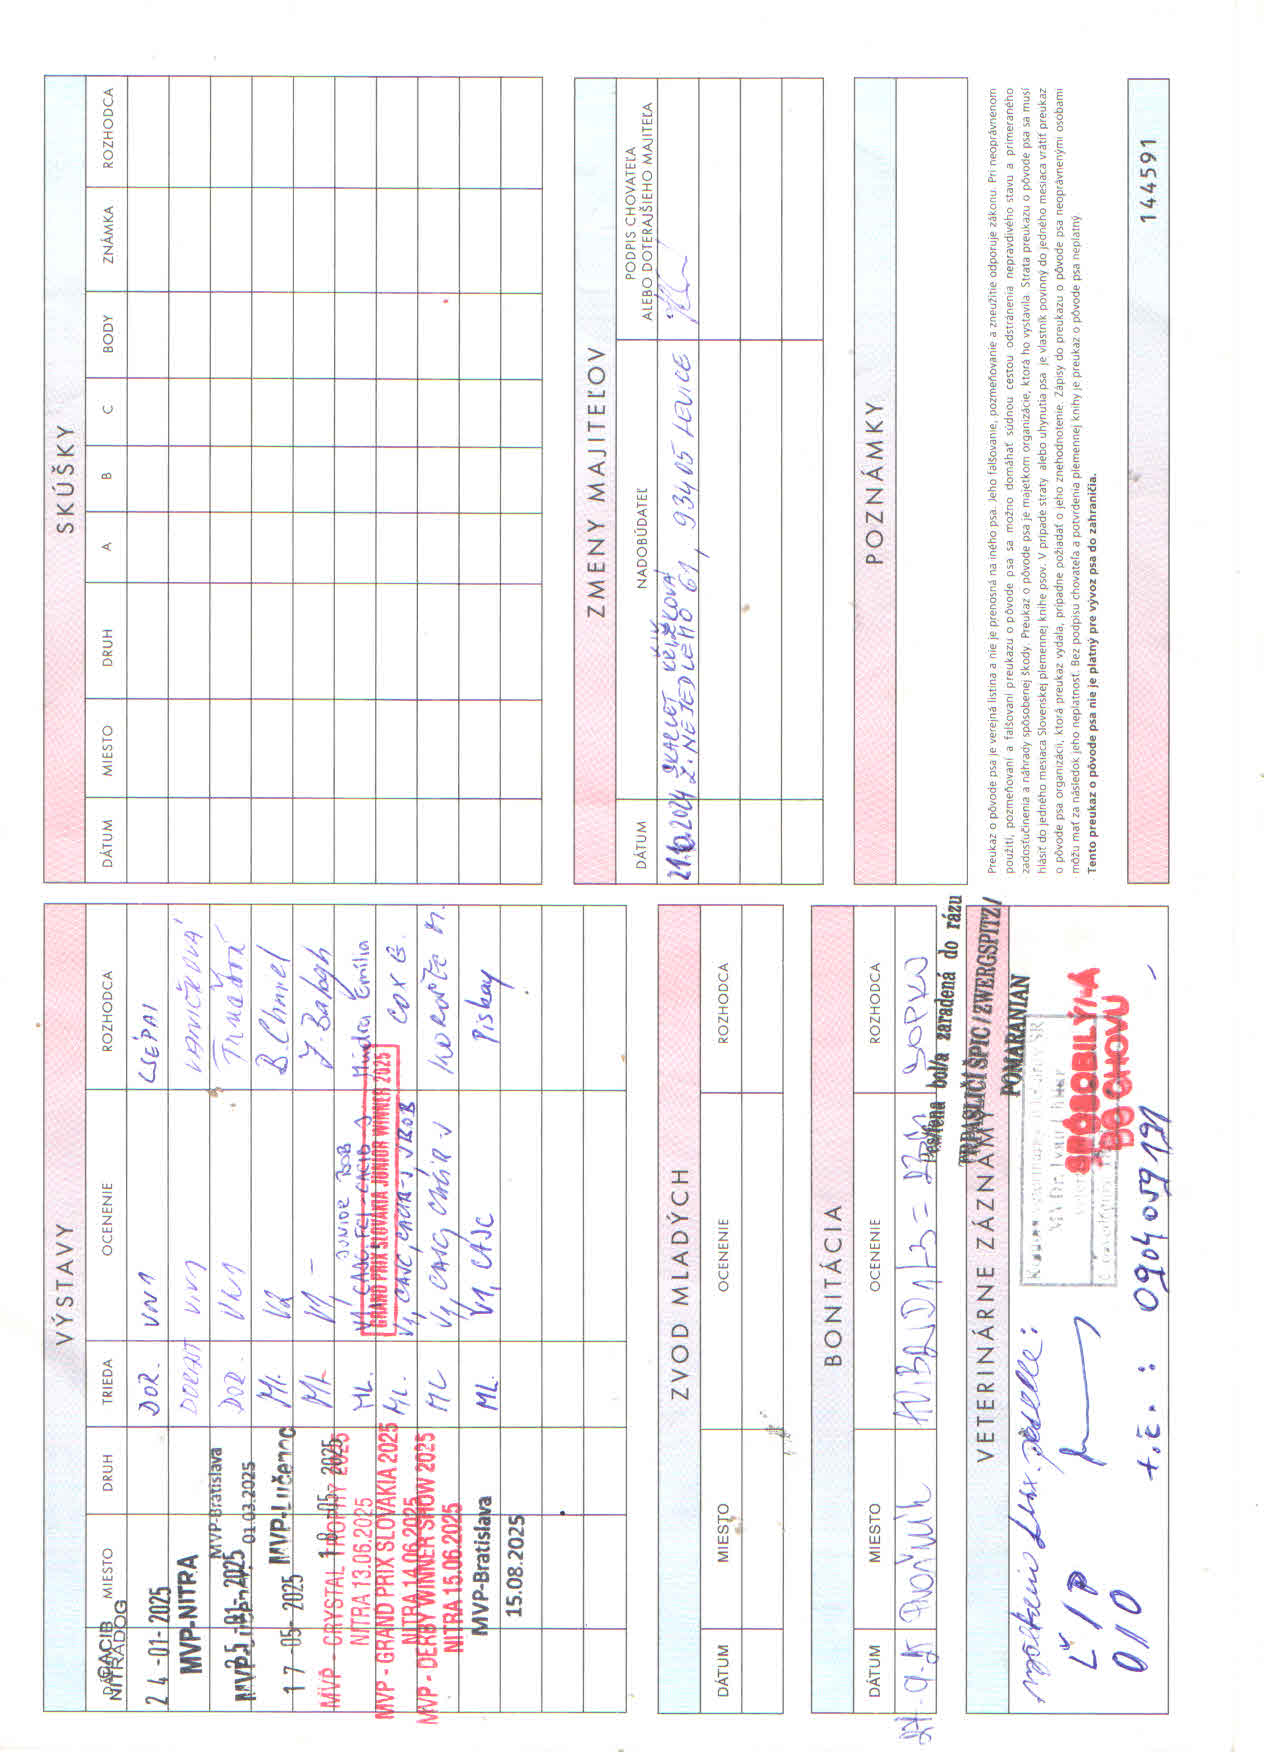 VÝSTAVY
DÁTUM MIESTO DRUH TRIEDA OCENENIE ROZHODCA
CACIB
NITRADOG
24-01-2025 DOR. VN1 CSÉPAI
MVP-NITRA DORAST VN1
25-01-2025
MVP-Bratislava
01.03.2025 DOR. VN1
MVP-Lučenec
17-05-2025 Ml. V2 B. Chmel
18-05-2025 ML V1, – J. Balogh
MVP - CRYSTAL TROPHY 2025
NITRA 13.06.2025 ML. V1, CAJC, FCI-CACIB-J Emília
JUNIOR BOB
GRAND PRIX SLOVAKIA JUNIOR WINNER 2025
MVP - GRAND PRIX SLOVAKIA 2025
NITRA 14.06.2025 ML. V1, CAJC, CACIB-J, JBOB COX G.
MVP - DERBY WINNER SHOW 2025
NITRA 15.06.2025 ML V1, CAJC, CACIB-J
MVP-Bratislava
15.08.2025 ML. V1, CAJC Piskay
ZVOD MLADÝCH
DÁTUM MIESTO OCENENIE ROZHODCA
BONITÁCIA
DÁTUM MIESTO OCENENIE ROZHODCA
Pes/fena bol/a zaradená do rázu
TRPASLIČÍ ŠPIC / ZWERGSPITZ /
POMARANIAN
VETERINÁRNE ZÁZNAMY
SPÔSOBILÝ/-A
DO CHOVU
Ľ / P
0 / 0
t.č. : 0904 059 191
SKÚŠKY
DÁTUM MIESTO DRUH A B C BODY ZNÁMKA ROZHODCA
ZMENY MAJITEĽOV
DÁTUM NADOBÚDATEĽ PODPIS CHOVATEĽA
ALEBO DOTERAJŠIEHO MAJITEĽA
21.10.2024 SKARLET
Z. NEJEDLÉHO 61, 934 05 LEVICE
POZNÁMKY
Preukaz o pôvode psa je verejná listina a nie je prenosná na iného psa. Jeho falšovanie, pozmeňovanie a zneužitie odporuje zákonu. Pri neoprávnenom
použití, pozmeňovaní a falšovaní preukazu o pôvode psa sa možno domáhať súdnou cestou odstránenia nepravdivého stavu a primeraného
zadosťučinenia a náhrady spôsobenej škody. Preukaz o pôvode psa je majetkom organizácie, ktorá ho vystavila. Strata preukazu o pôvode psa sa musí
hlásiť do jedného mesiaca Slovenskej plemennej knihe psov. V prípade straty alebo uhynutia psa je vlastník povinný do jedného mesiaca vrátiť preukaz
o pôvode psa organizácii, ktorá preukaz vydala, prípadne požiadať o jeho znehodnotenie. Zápisy do preukazu o pôvode psa neoprávnenými osobami
môžu mať za následok jeho neplatnosť. Bez podpisu chovateľa a potvrdenia plemennej knihy je preukaz o pôvode psa neplatný.
Tento preukaz o pôvode psa nie je platný pre vývoz psa do zahraničia.
144591